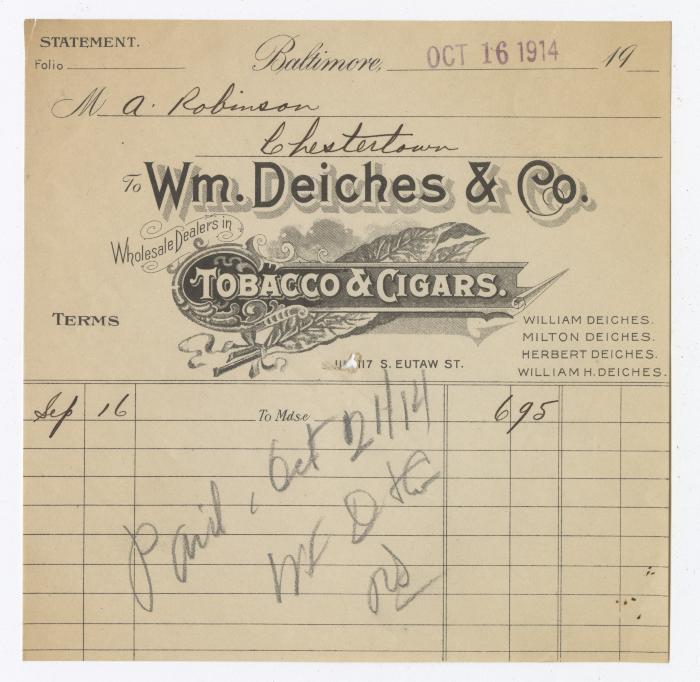 STATEMENT.
Folio
Baltimore, OCT 16 1914 19
M A. Robinson
Chestertown
To Wm. Deiches & Co.
Wholesale Dealers in
TOBACCO & CIGARS.
TERMS
WILLIAM DEICHES.
MILTON DEICHES.
HERBERT DEICHES.
WILLIAM H. DEICHES.
117 S. EUTAW ST.
Sep 16 To Mdse 6 95
Paid, Oct 21/14